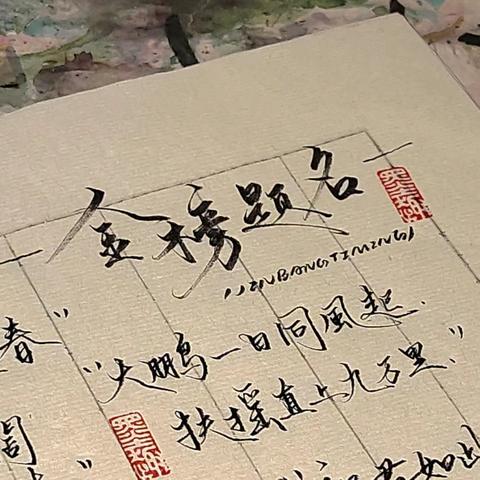 金榜题名
JINBANGTIMING
春”
“大鹏一日同風起.
扶摇直上九万里.”
周
”
如此